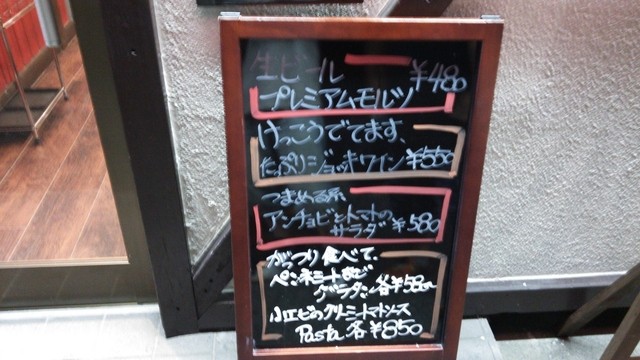 生ビール ¥480
プレミアムモルツ
けっこうでてます、
たっぷりジョッキワイン ¥550
つまめる系
アンチョビとトマトの
サラダ ¥580
がっつり食べて、
ペンネミート
グラタン 各¥580
小エビのクリーミートマトソース
Pasta 各¥850